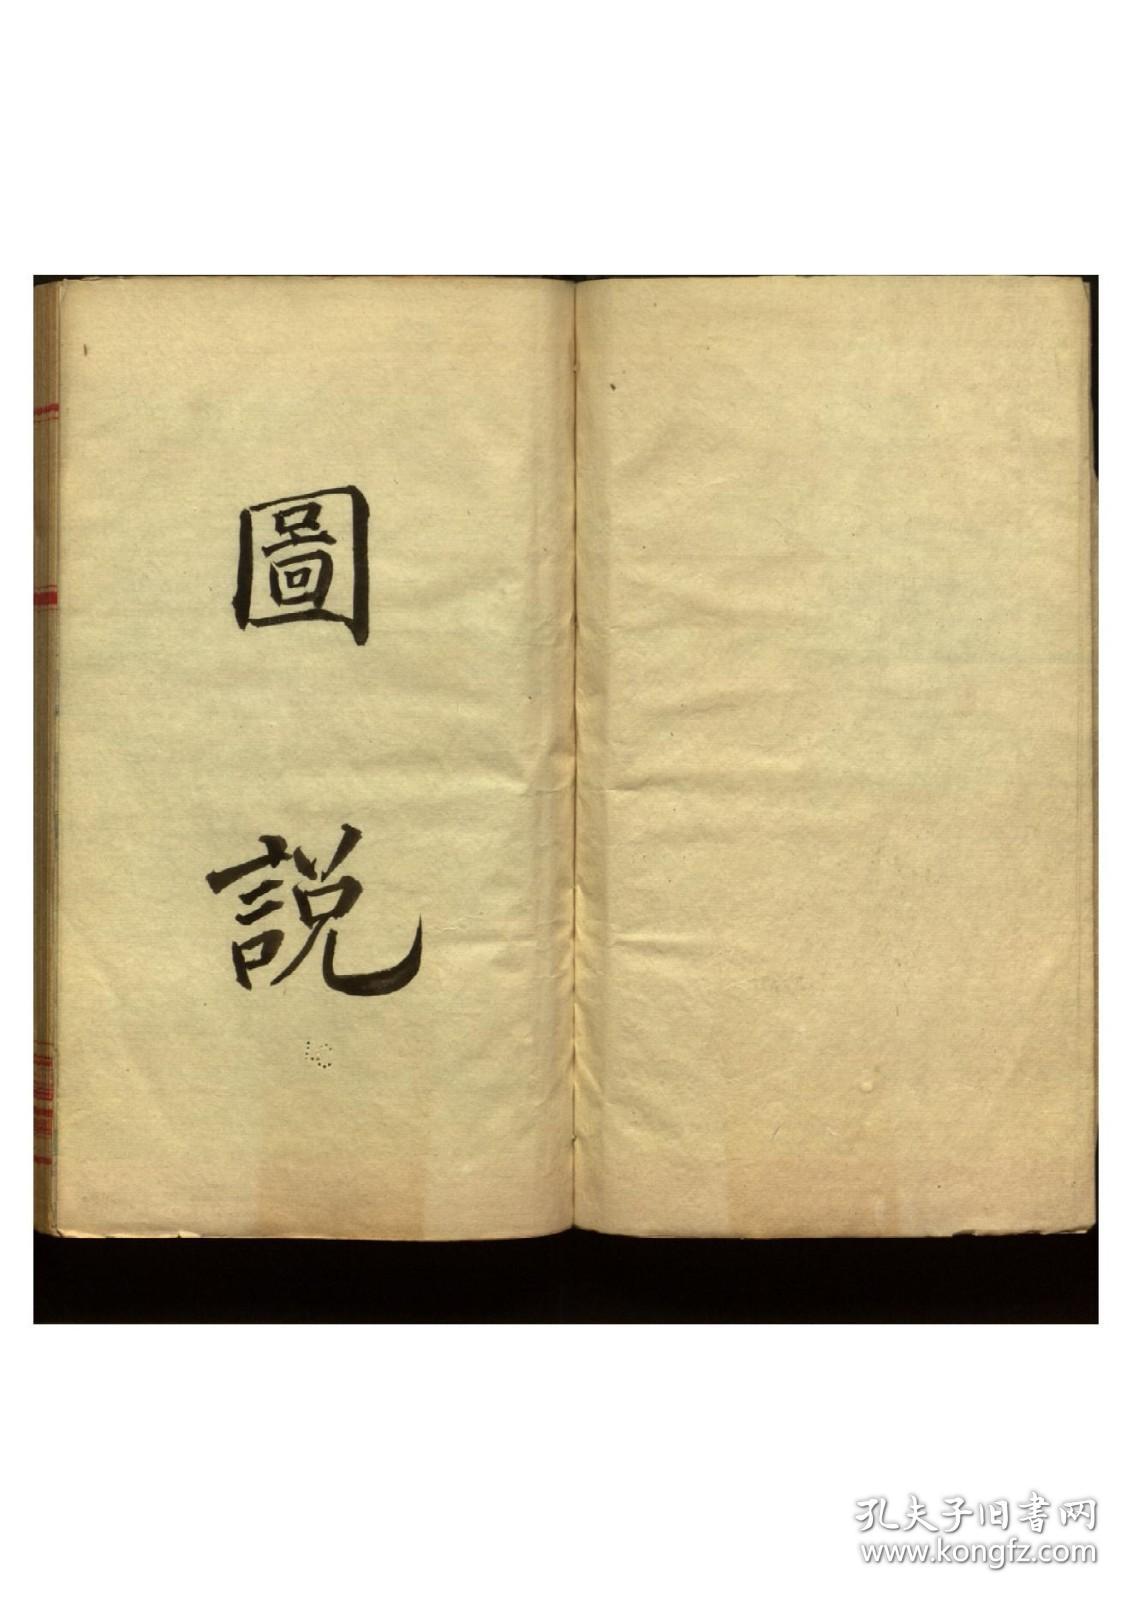 圖說
孔夫子旧书网
www.kongfz.com